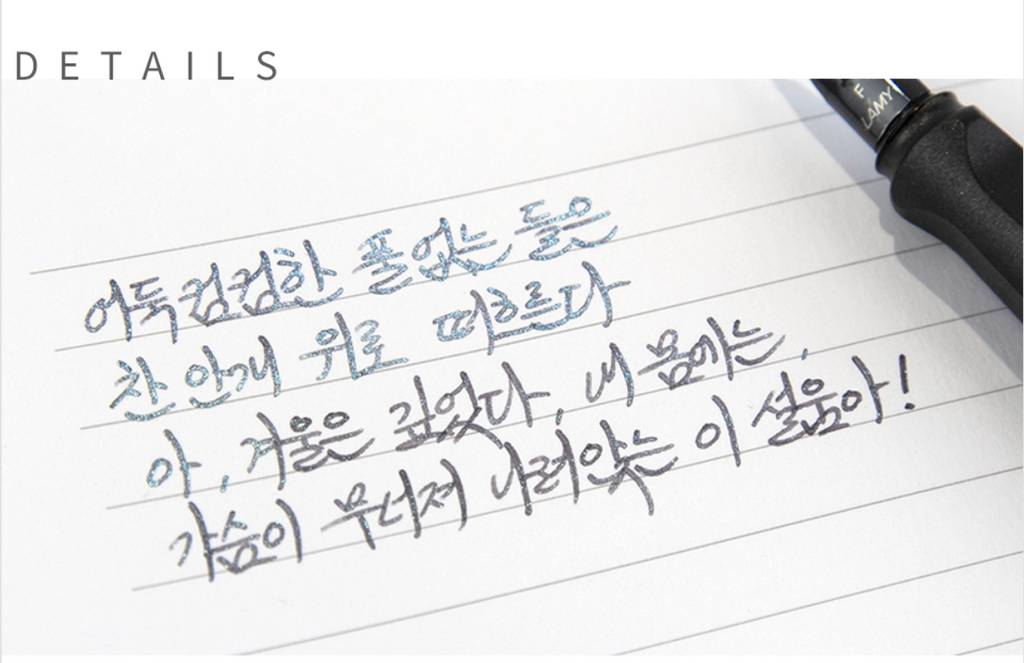 DETAILS
F
LAMY
어둑컴컴한 풀 없는 들은
찬 안개 위로 떠흐르다
아, 겨울은 깊었다, 내 몸에는,
가슴이 무너져 내려앉는 이 설움아!